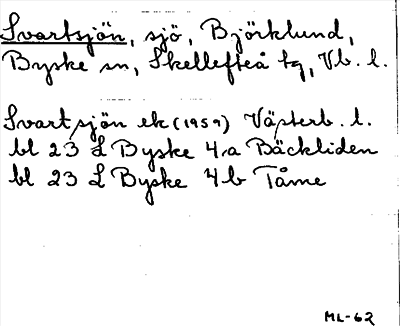 Svartsjön, sjö, Björklund,
Byske sn, Skellefteå tg, Vb. l.
Svartsjön ek (1959) Västerb. l.
bl 23 L Byske 4a Bäckliden
bl 23 L Byske 4b Tåme
ML-62